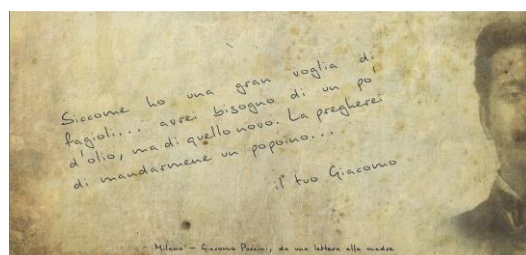 Siccome ho una gran voglia di
fagioli... avrei bisogno di un po'
d'olio, ma di quello novo. La pregherei
di mandarmene un popoino...
il tuo Giacomo
Milano – Giacomo Puccini, da una lettera alla madre